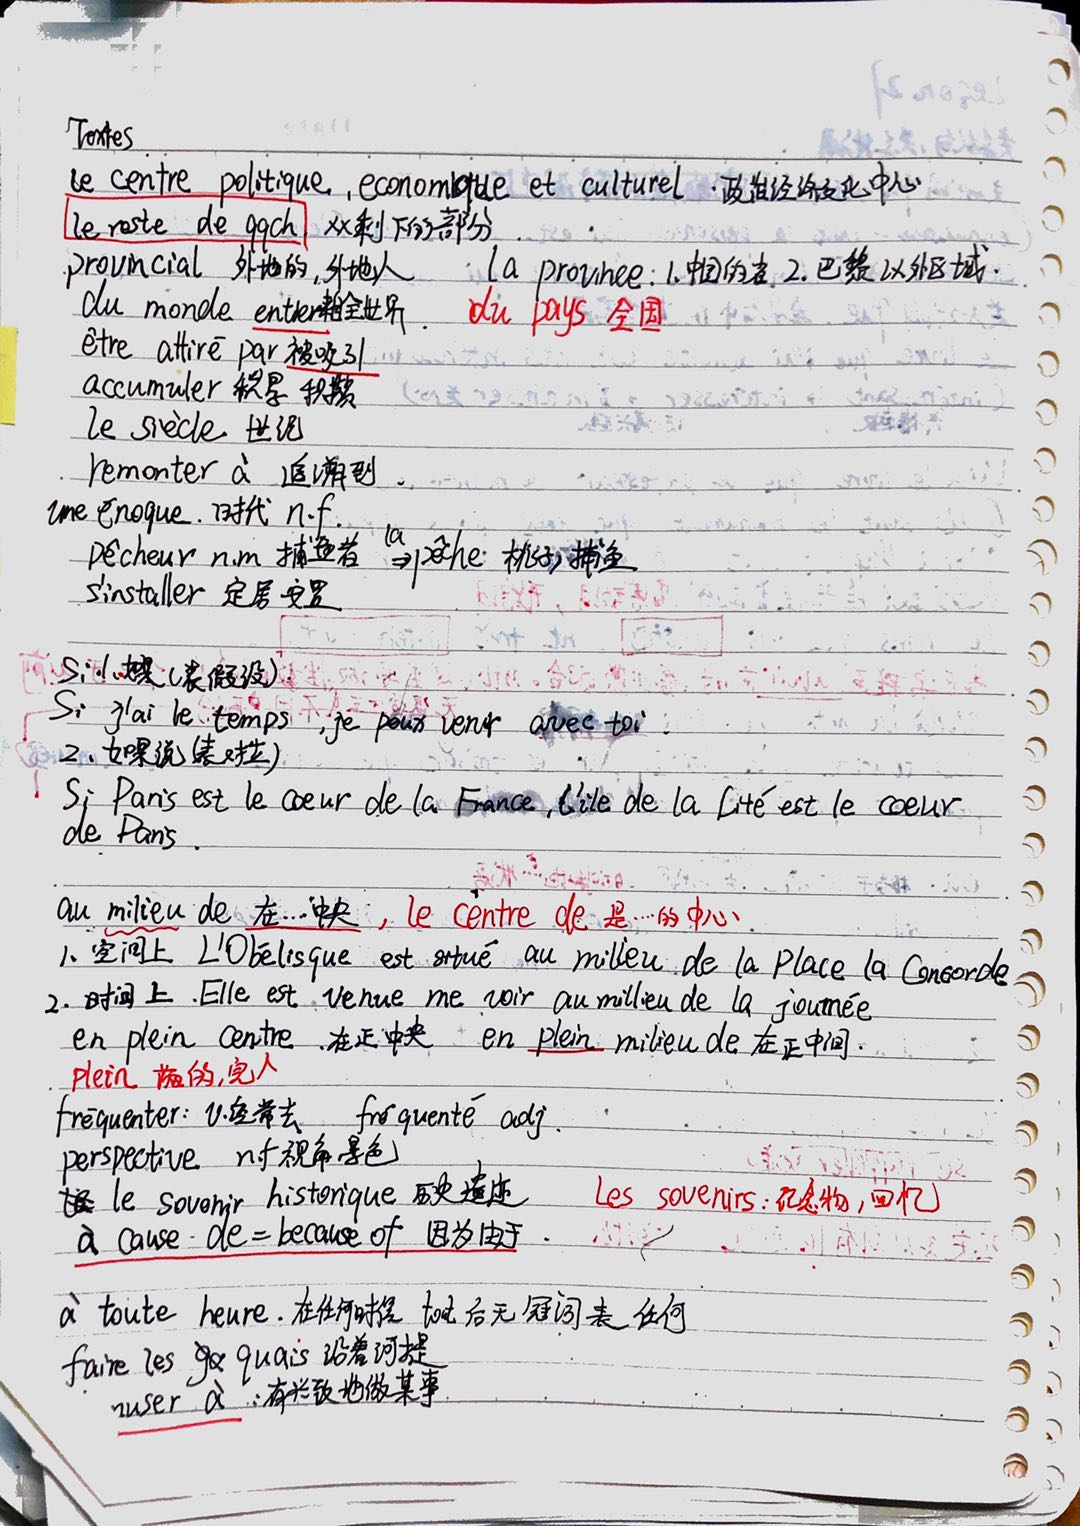 Textes
le centre politique, economique et culturel. 政治经济文化中心
le reste de qqch xx剩下的部分
provincial 外地的,外地人 la province: 1.中国的省 2.巴黎以外区域.
du monde entier 全世界. du pays 全国
être attiré par 被吸引
accumuler 积累 积攒
le siècle 世纪
remonter à 追溯到.
une époque. 时代 n.f.
pêcheur n.m 捕鱼者 → la pêche: 桃子, 捕鱼
s'installer 定居 安置
Si: 1.如果(表假设)
Si j'ai le temps, je peux venir avec toi.
2.如果说(表对立)
Si Paris est le coeur de la France, l'île de la Cité est le coeur
de Paris.
au milieu de 在...中央, le centre de 是...的中心
1.空间上 L'Obélisque est situé au milieu de la Place la Concorde
2.时间上. Elle est venue me voir au millieu de la journée
en plein centre. 在正中央 en plein milieu de 在正中间.
plein 满的,完人
fréquenter: v.经常去 fréquenté adj.
perspective n.f 视角景色
le sovenir historique 历史遗迹 Les sovenirs: 纪念物,回忆
à cause de = because of 因为由于.
à toute heure. 在任何时候 tout后无冠词表任何
faire les quais 沿着河堤
muser à: 有兴致地做某事